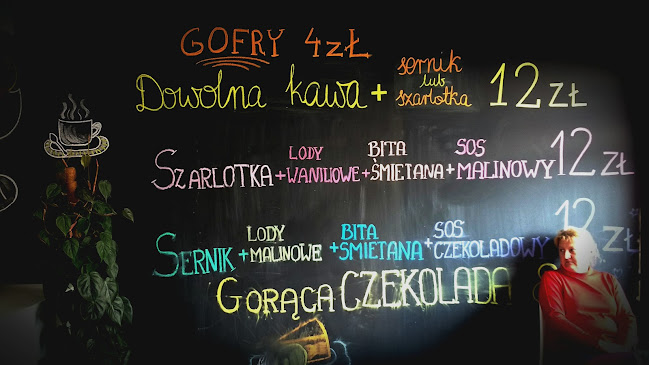 GOFRY 4zŁ
Dowolna kawa + sernik lub szarlotka 12 ZŁ
SZARLOTKA + LODY WANILIOWE + BITA ŚMIETANA + SOS MALINOWY 12 ZŁ
SERNIK + LODY MALINOWE + BITA ŚMIETANA + SOS CZEKOLADOWY 12 ZŁ
GORĄCA CZEKOLADA